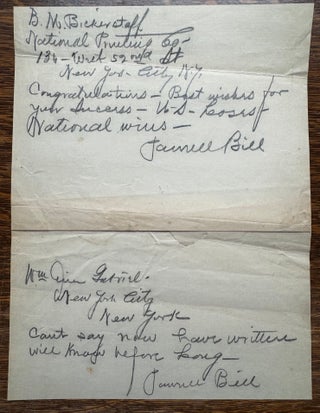 B. M. Bickerstaff
National Printing Co
134 - West 52nd St
New York City N.Y.
Congratulations - Best wishes for
your success - U.S. loses
National wins -
Pawnee Bill
Wm Gabriel -
New York City
New York
Cant say now have written
will know before long -
Pawnee Bill